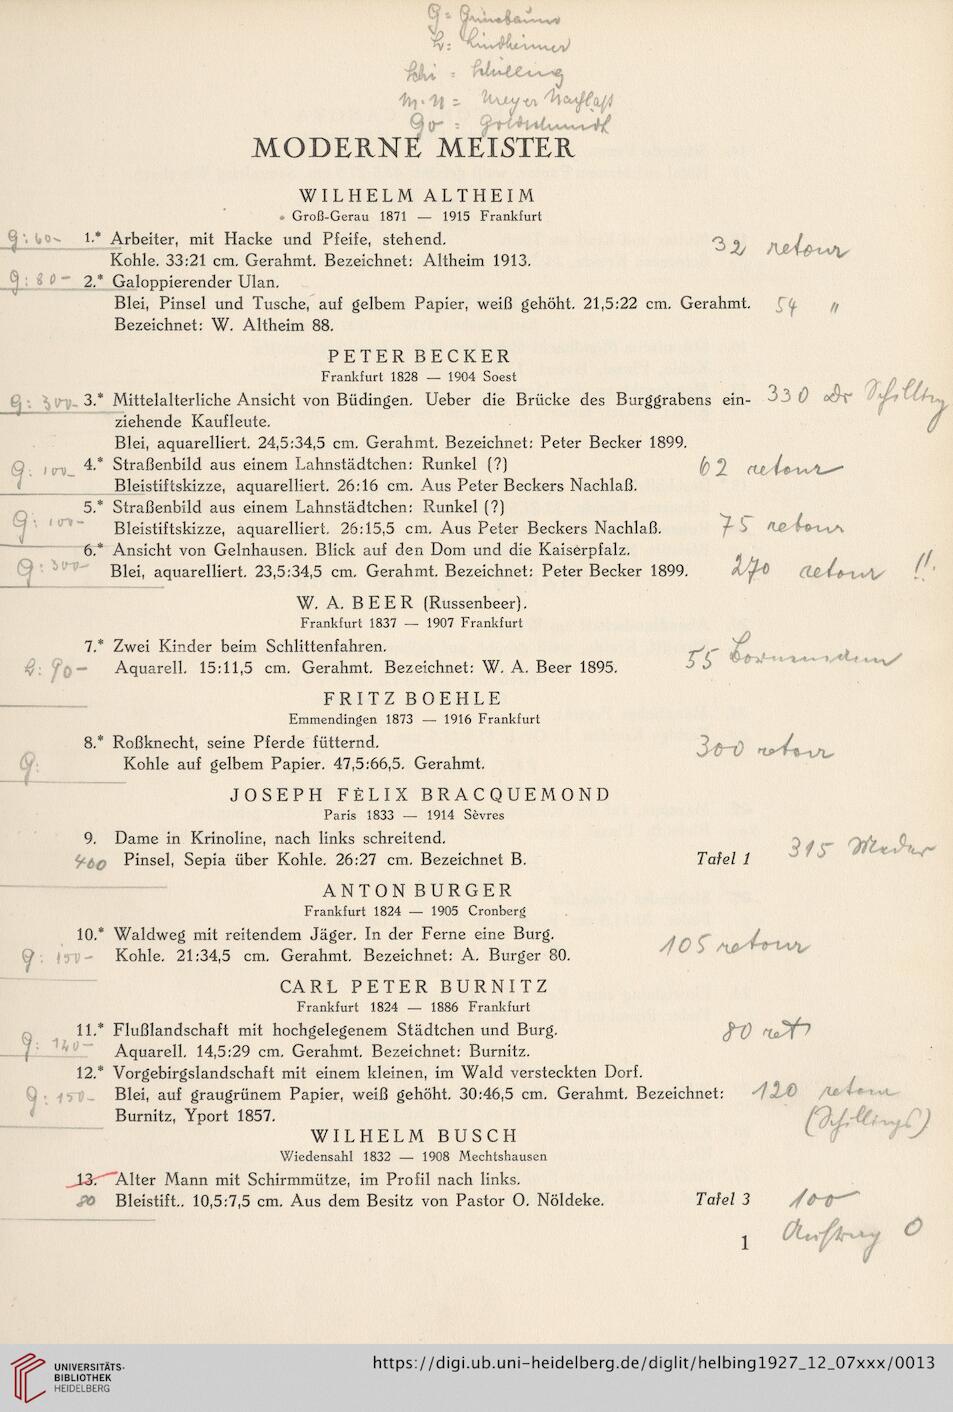 G = Grünebaum
L: Lindheimer
Schi = Schilling
M.N = Meyer Nachlaß
Go = Goldschmidt
MODERNE MEISTER
WILHELM ALTHEIM
Groß-Gerau 1871 — 1915 Frankfurt
G: 60- 1.* Arbeiter, mit Hacke und Pfeife, stehend. 32 retour
Kohle. 33:21 cm. Gerahmt. Bezeichnet: Altheim 1913.
G: 80- 2.* Galoppierender Ulan.
Blei, Pinsel und Tusche, auf gelbem Papier, weiß gehöht. 21,5:22 cm. Gerahmt. 54 "
Bezeichnet: W. Altheim 88.
PETER BECKER
Frankfurt 1828 — 1904 Soest
G: 300- 3.* Mittelalterliche Ansicht von Büdingen. Ueber die Brücke des Burggrabens ein- 330 Dr Schilling
ziehende Kaufleute.
Blei, aquarelliert. 24,5:34,5 cm. Gerahmt. Bezeichnet: Peter Becker 1899.
G: 100- 4.* Straßenbild aus einem Lahnstädtchen: Runkel (?) 62 retour
Bleistiftskizze, aquarelliert. 26:16 cm. Aus Peter Beckers Nachlaß.
5.* Straßenbild aus einem Lahnstädtchen: Runkel (?)
G: 100- Bleistiftskizze, aquarelliert. 26:15,5 cm. Aus Peter Beckers Nachlaß. 75 retour
6.* Ansicht von Gelnhausen. Blick auf den Dom und die Kaiserpfalz.
G: 300- Blei, aquarelliert. 23,5:34,5 cm. Gerahmt. Bezeichnet: Peter Becker 1899. 270 retour !!
W. A. BEER (Russenbeer).
Frankfurt 1837 — 1907 Frankfurt
7.* Zwei Kinder beim Schlittenfahren.
L: 90- Aquarell. 15:11,5 cm. Gerahmt. Bezeichnet: W. A. Beer 1895. 55
FRITZ BOEHLE
Emmendingen 1873 — 1916 Frankfurt
8.* Roßknecht, seine Pferde fütternd. 300 retour
G: Kohle auf gelbem Papier. 47,5:66,5. Gerahmt.
JOSEPH FÈLIX BRACQUEMOND
Paris 1833 — 1914 Sèvres
9. Dame in Krinoline, nach links schreitend.
400 Pinsel, Sepia über Kohle. 26:27 cm. Bezeichnet B. Tafel 1 315 Meder
ANTON BURGER
Frankfurt 1824 — 1905 Cronberg
10.* Waldweg mit reitendem Jäger. In der Ferne eine Burg.
G: 150- Kohle. 21:34,5 cm. Gerahmt. Bezeichnet: A. Burger 80. 105 retour
CARL PETER BURNITZ
Frankfurt 1824 — 1886 Frankfurt
11.* Flußlandschaft mit hochgelegenem Städtchen und Burg. 80 ret
G: 120- Aquarell. 14,5:29 cm. Gerahmt. Bezeichnet: Burnitz.
12.* Vorgebirgslandschaft mit einem kleinen, im Wald versteckten Dorf.
G: 150- Blei, auf graugrünem Papier, weiß gehöht. 30:46,5 cm. Gerahmt. Bezeichnet: 120 retour
Burnitz, Yport 1857. (Schillings)
WILHELM BUSCH
Wiedensahl 1832 — 1908 Mechtshausen
13. Alter Mann mit Schirmmütze, im Profil nach links.
80 Bleistift.. 10,5:7,5 cm. Aus dem Besitz von Pastor O. Nöldeke. Tafel 3 100
1
UNIVERSITÄTS-
BIBLIOTHEK
HEIDELBERG
https://digi.ub.uni-heidelberg.de/diglit/helbing1927_12_07xxx/0013